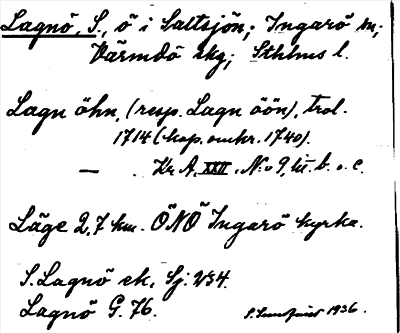 Lagnö, S., ö i Saltsjön; Ingarö sn;
Värmdö skg; Sthlms l.
Lagn öhn, (resp. Lagn öön), trol.
1714 (kop. omkr. 1740).
— Kr. A, XXII, N:o 9, lit. b. o. c.
Läge 2,7 km. ÖNÖ Ingarö kyrka.
S. Lagnö ek, Sj. 254.
Lagnö G. 76. 1936.